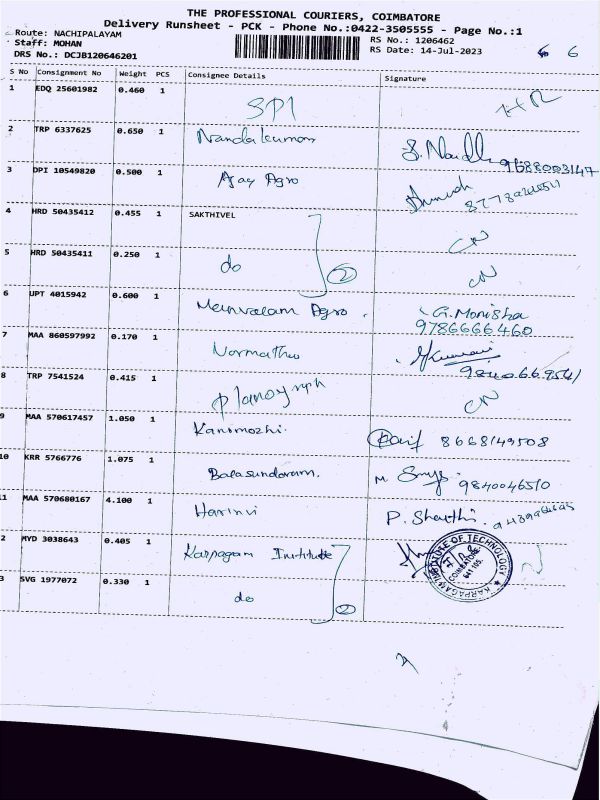 THE PROFESSIONAL COURIERS, COIMBATORE
Delivery Runsheet - PCK - Phone No.:0422-3505555 - Page No.:1
Route: NACHIPALAYAM
Staff: MOHAN
DRS No.: DCJB120646201
RS No.: 1206462
RS Date: 14-Jul-2023
6 6
S No Consignment No Weight PCS Consignee Details Signature
1 EDQ 25601982 0.460 1 SPI
2 TRP 6337625 0.650 1 Nandakumar 9688003147
3 DPI 10549820 0.500 1 Ajay Agro
4 HRD 50435412 0.455 1 SAKTHIVEL CN
5 HRD 50435411 0.250 1 do 2 CN
6 UPT 4015942 0.600 1 Agro. G. Monisha
9786666460
7 MAA 860597992 0.170 1
8 TRP 7541524 0.415 1 planograph CN
9 MAA 570617457 1.050 1 Kanimozhi. 8668149508
10 KRR 5766776 1.075 1 Balasundaram. M 9840046510
11 MAA 570680167 4.100 1 Harinvi P. Shanthi
2 MYD 3038643 0.405 1 Karpagam Institute
3 SVG 1977072 0.330 1 do 2
INSTITUTE OF TECHNOLOGY
COIMBATORE
641 105.
KARPAGAM